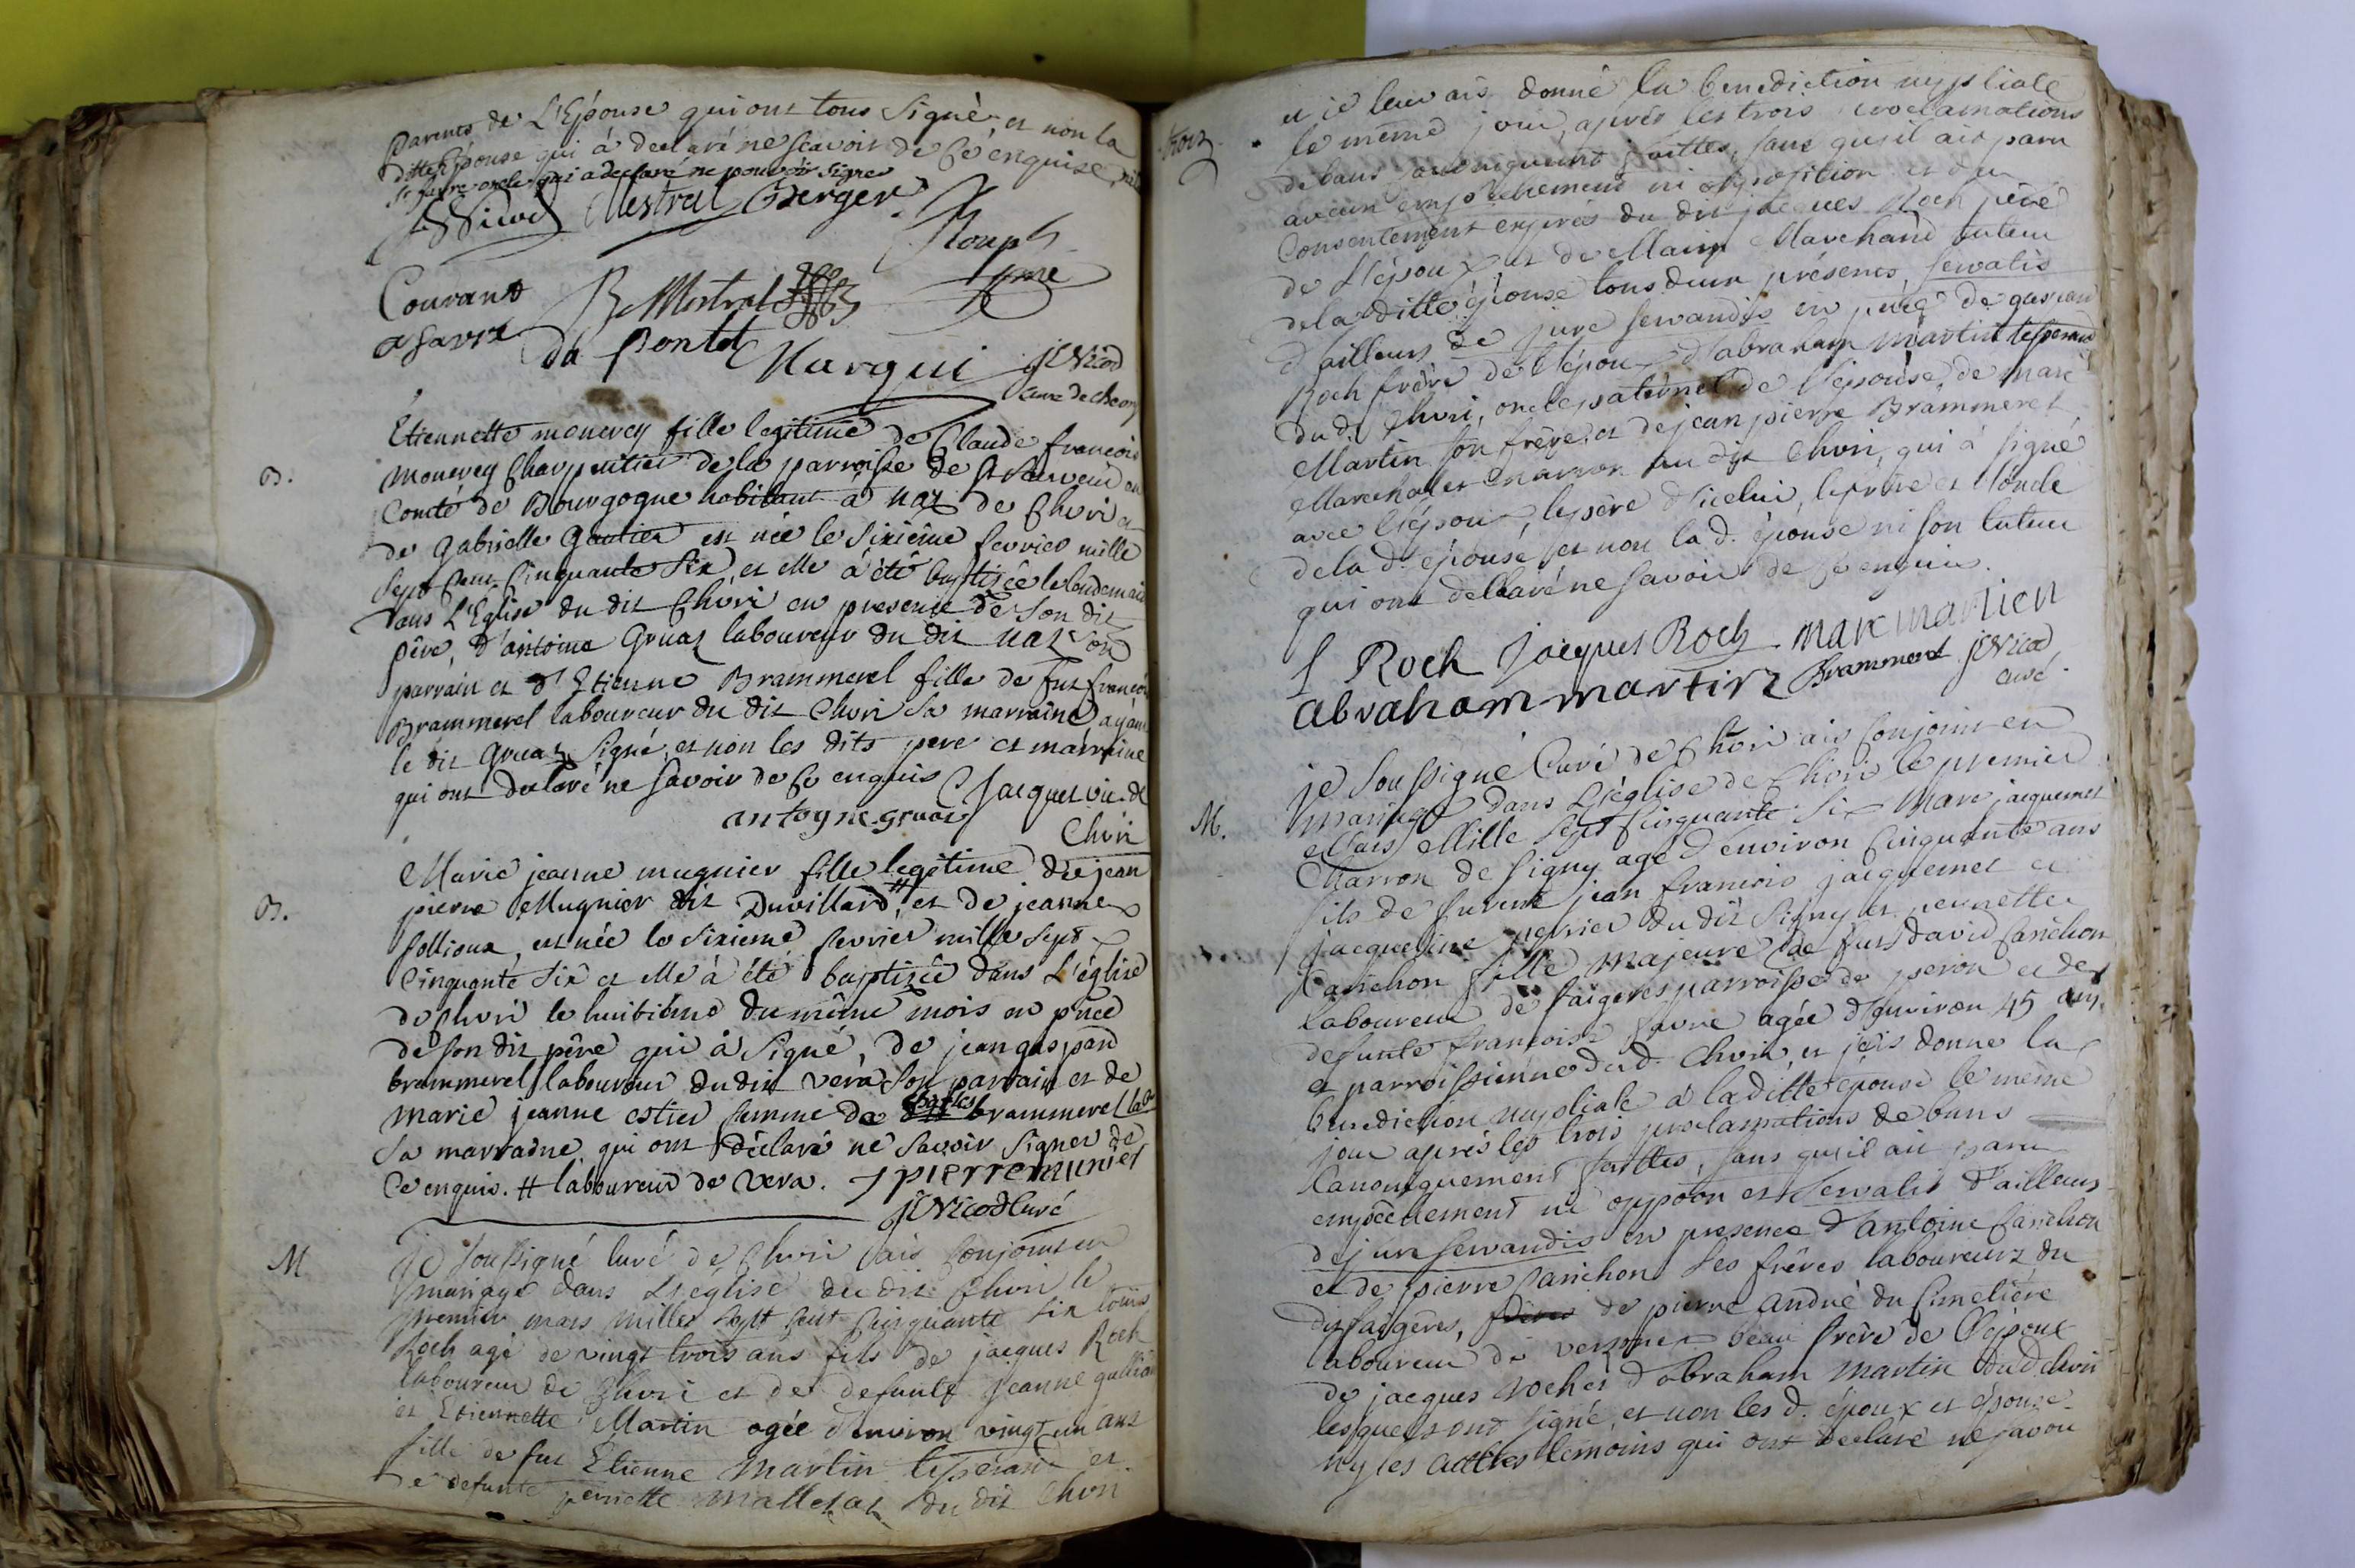 parents de L'Epouse qui ont tous signé et non la
ditte Epouse qui à declaré ne scavoir de ce enquise
qui a declaré ne pouvoir signer
Mestral Berger
Courant B Mestral
du pontet
Marqui jC Nicod
curé de chevry
B.
Etiennette monerey fille legitime de Claude françois
monerey Charpentier de la parroisse de
Comté de Bourgogne habitant à naz de Chvri et
de gabrielle gautier est née le sixième fevrier mille
sept cent cinquante six, et elle à été baptisée le lendemain
dans L'Eglise du dit Chvri en presence de son dit
père, d'antoine gruaz laboureur du dit naz son
parrain et d'Etienne Brammerel fille de fut françois
Brammerel laboureur du dit Chvri sa marraine ayant
le dit gruaz signé, et non les dits pere et marraine
qui ont declaré ne savoir de ce enquis Jacquet vic. de
antoyne gruaz Chvri
B.
Marie jeanne mugnier fille legitime de jean
pierre Mugnier dit Duvillard, # et de jeanne
sollioux, est née le sixieme fevrier mille sept
cinquante six et elle à été baptizée dans L'église
de chvri le huitième du même mois en pnce
de son dit père qui à signé, de jean gaspard
brammerel laboureur dudit vera son parrain et de
marie jeanne estier femme de charles brammerel lab
sa marraine qui ont déclaré ne savoir signer de
ce enquis. # laboureur de vera. J pierre munier
jC Nicod Curé
M
Je soussigné curé de Chvri ais conjoint en
mariage dans L'église du dit Chvri le
premier mars mille sept cent cinquante six louis
Roch agé de vingt trois ans fils de jacques Roch
laboureur de Chvri et de defunte jeanne
et Etiennette Martin agée d'environ vingt un ans
fille de fut Etienne Martin tisserand et
de defunte pernette du dit Chvri
et je leur ais donné la benediction nuptiale
le même jour, après les trois proclamations
de bans canoniquement faittes, sans qu'il ait paru
aucun empêchement ni opposition et du
Consentement exprès du dit jacques Roch père
de l'époux et de Marchand tuteur
de la ditte épouse tous deux présents, servatis
d'ailleurs de jure servandis en pnce de gaspard
Roch frère de l'époux d'abraham Martin tisserand
du d. Chvri, oncle paternel de l'épouse, de marc
Martin son frère et de jean pierre Brammerel
Marechal et charron du dit Chvri, qui à signé
avec l'époux, le père d'icelui, le frère et l'oncle
de la d. épouse et non la d. épouse ni son tuteur
qui ont déclaré ne savoir de ce enquis.
Roch Jacques Roch marc martien
abraham martin Brammerel jC Nicod
curé.
M.
je soussigné Curé de Chvri ais conjoint en
mariage dans L'église de Chvri le premier
Mars Mille sept cinquante six Marc jacquemet
Charron de Signy agé d'environ cinquante ans
fils de furent jean francois jacquemet et
jacqueline du dit Signy et pernette
Canichon fille majeure de fut david Canichon
laboureur de faigeres parroisse de peron et de
defunte francoise favre agée d'environ 45 ans
et parroissienne du d. Chvri, et j'ais donné la
benediction nuptiale à la ditte épouse le même
jour après les trois proclamations de bans
Canoniquement faittes, sans qu'il ait paru
empêchement ni oppoon et servatis d'ailleurs
de jure servandis en presence d'antoine Canichon
et de pierre Canichon ses frères laboureurs du
dit faigeres, de pierre andré du Cimetière
laboureur de beau frère de l'époux
de jacques roch et d'abraham martin du d. Chvri
lesquels ont signé, et non les d. époux et épouse
ny les autres temoins qui ont declaré ne savoir